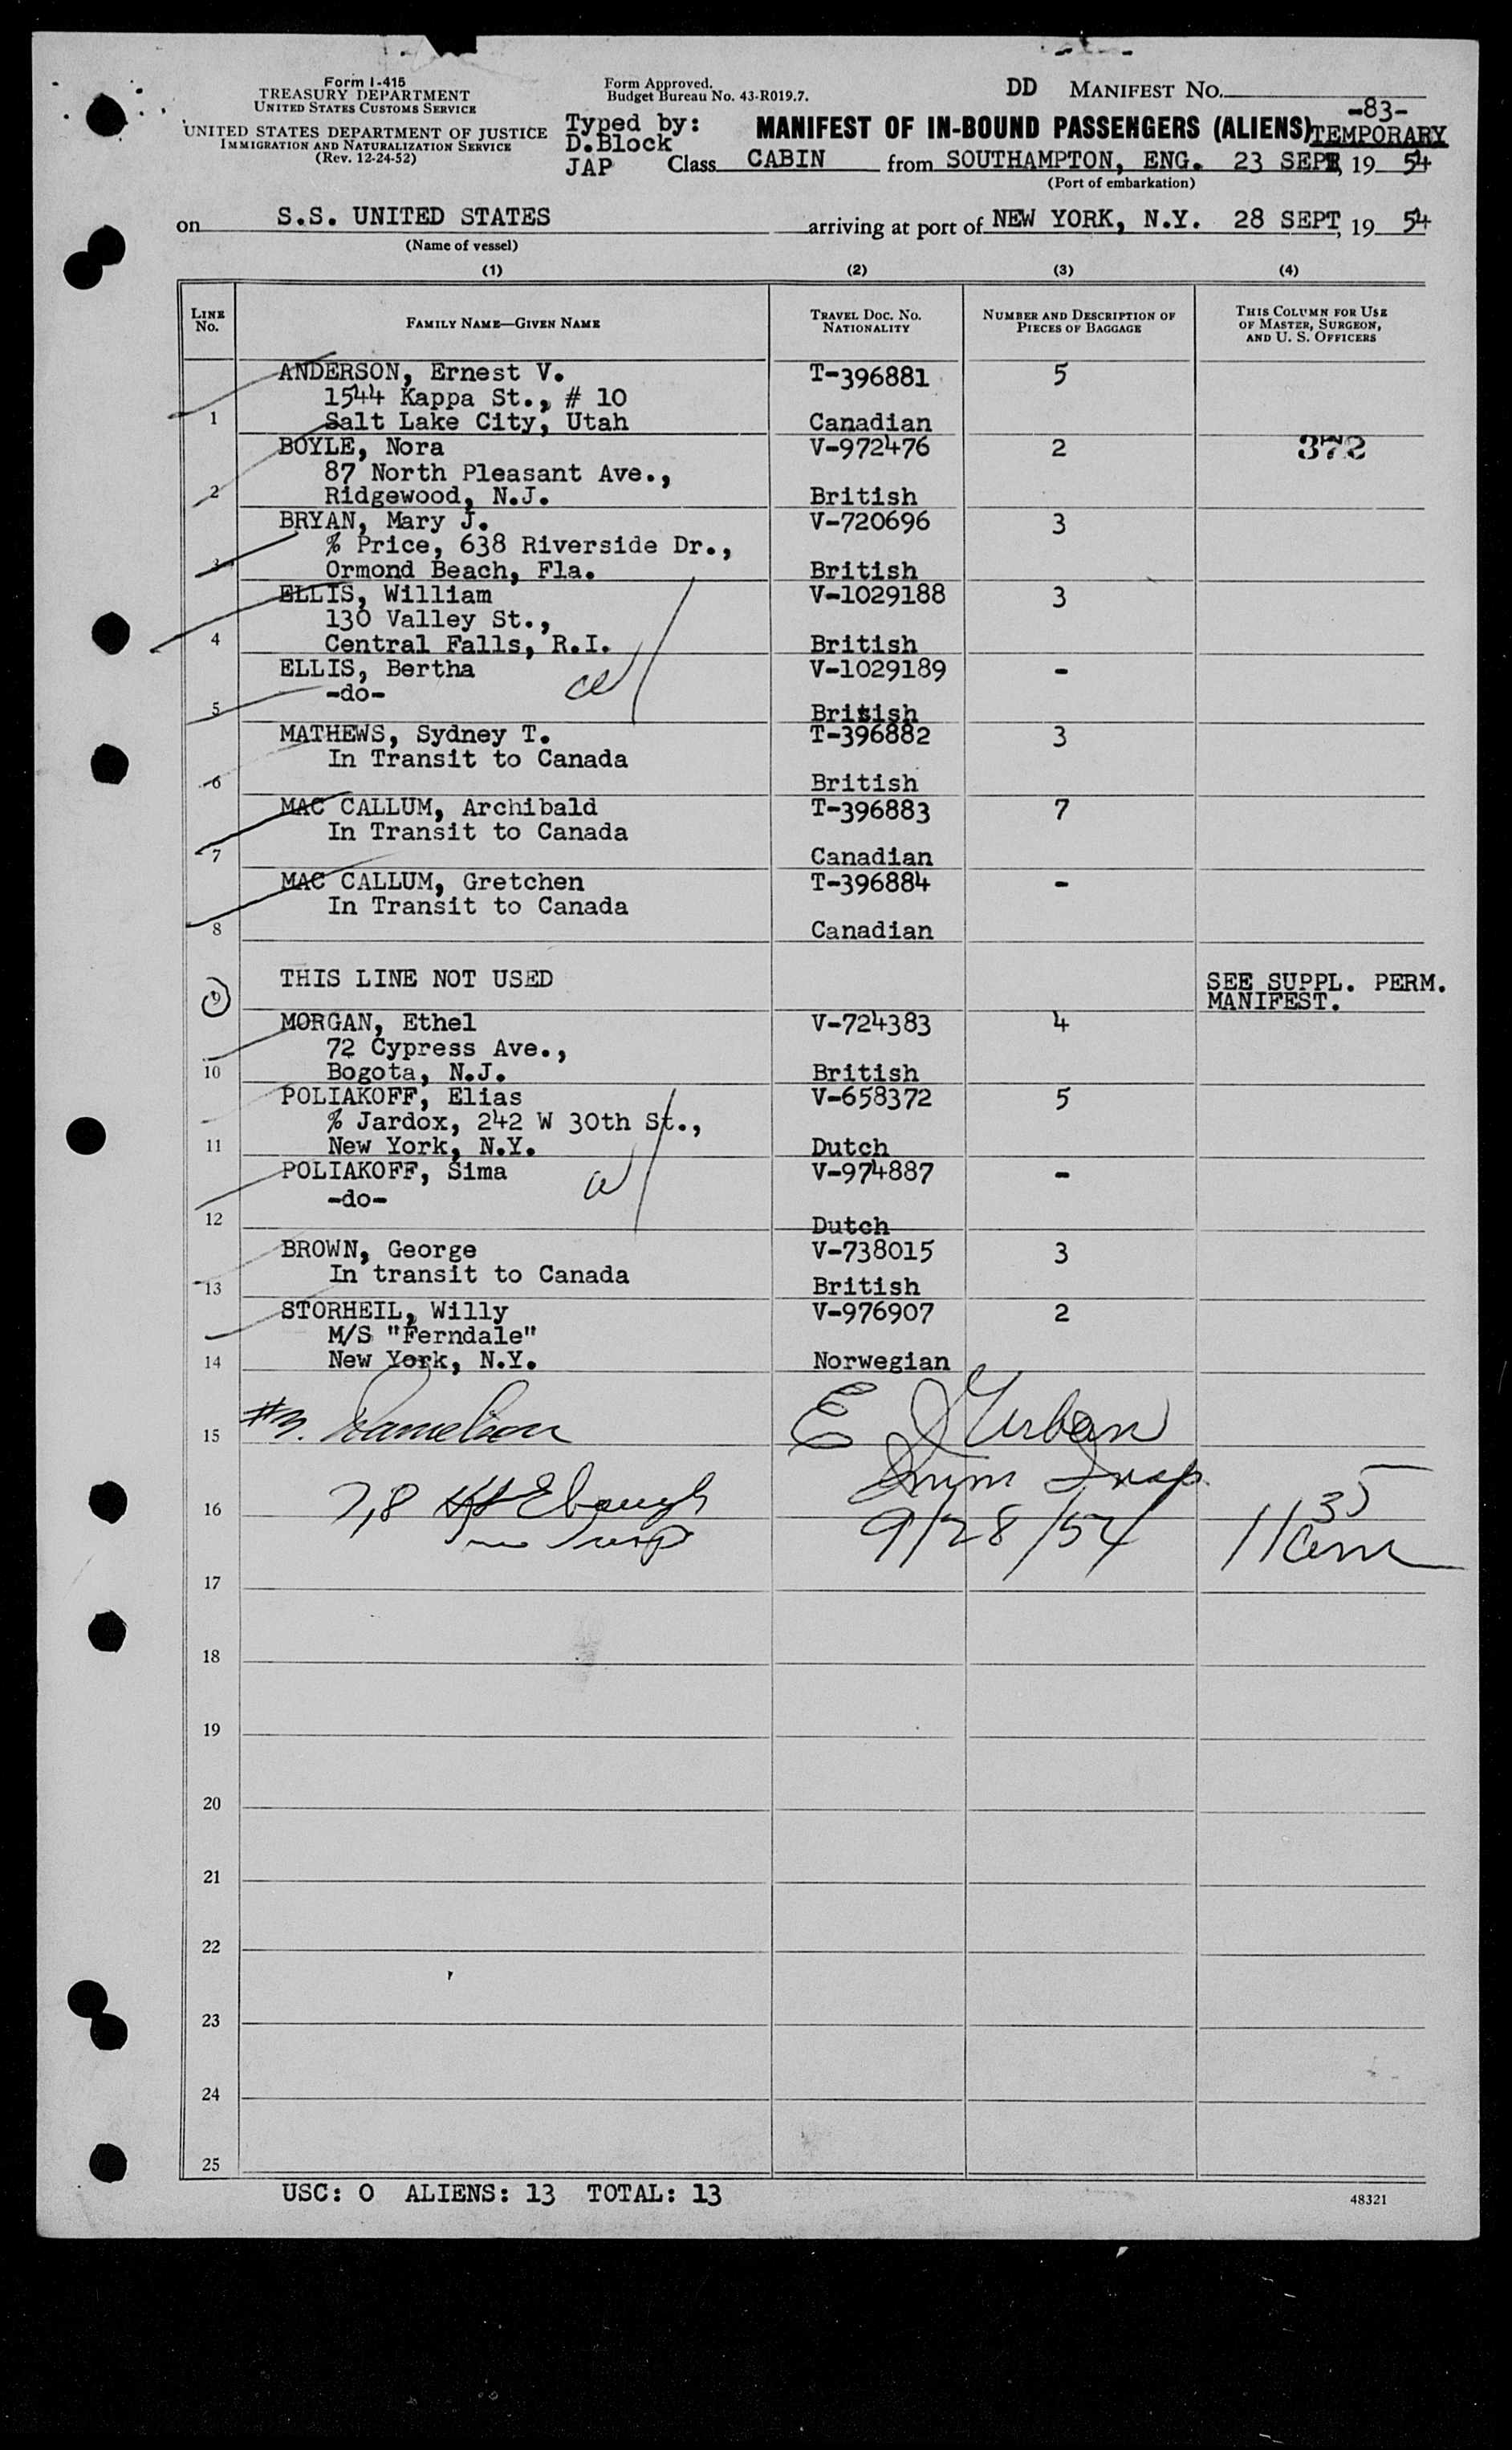 Form I-415
TREASURY DEPARTMENT
UNITED STATES CUSTOMS SERVICE
UNITED STATES DEPARTMENT OF JUSTICE
IMMIGRATION AND NATURALIZATION SERVICE
(Rev. 12-24-52)
Form Approved.
Budget Bureau No. 43-R019.7.
Typed by:
D.Block
JAP
DD MANIFEST No.
-83-
MANIFEST OF IN-BOUND PASSENGERS (ALIENS) TEMPORARY
Class CABIN from SOUTHAMPTON, ENG. 23 SEPT, 19 54
(Port of embarkation)
on S.S. UNITED STATES arriving at port of NEW YORK, N.Y. 28 SEPT, 19 54
(Name of vessel)
(1) (2) (3) (4)
LINE No. FAMILY NAME—GIVEN NAME TRAVEL DOC. NO. NATIONALITY NUMBER AND DESCRIPTION OF PIECES OF BAGGAGE THIS COLUMN FOR USE OF MASTER, SURGEON, AND U. S. OFFICERS
ANDERSON, Ernest V. T-396881 5
1544 Kappa St., # 10
1 Salt Lake City, Utah Canadian
BOYLE, Nora V-972476 2 372
87 North Pleasant Ave.,
2 Ridgewood, N.J. British
BRYAN, Mary J. V-720696 3
% Price, 638 Riverside Dr.,
3 Ormond Beach, Fla. British
ELLIS, William V-1029188 3
130 Valley St.,
4 Central Falls, R.I. British
ELLIS, Bertha V-1029189 -
-do-
5 British
MATHEWS, Sydney T. T-396882 3
In Transit to Canada
6 British
MAC CALLUM, Archibald T-396883 7
In Transit to Canada
7 Canadian
MAC CALLUM, Gretchen T-396884 -
In Transit to Canada
8 Canadian
9 THIS LINE NOT USED SEE SUPPL. PERM.
MANIFEST.
MORGAN, Ethel V-724383 4
72 Cypress Ave.,
10 Bogota, N.J. British
POLIAKOFF, Elias V-658372 5
% Jardox, 242 W 30th St.,
11 New York, N.Y. Dutch
POLIAKOFF, Sima V-974887 -
-do-
12 Dutch
BROWN, George V-738015 3
In transit to Canada
13 British
STORHEIL, Willy V-976907 2
M/S "Ferndale"
14 New York, N.Y. Norwegian
15 E J Urban
Imm Insp
16 7,8 Ebaugh
Imm Insp 9/28/54 11 35 am
17
18
19
20
21
22
23
24
25
USC: 0 ALIENS: 13 TOTAL: 13
48321